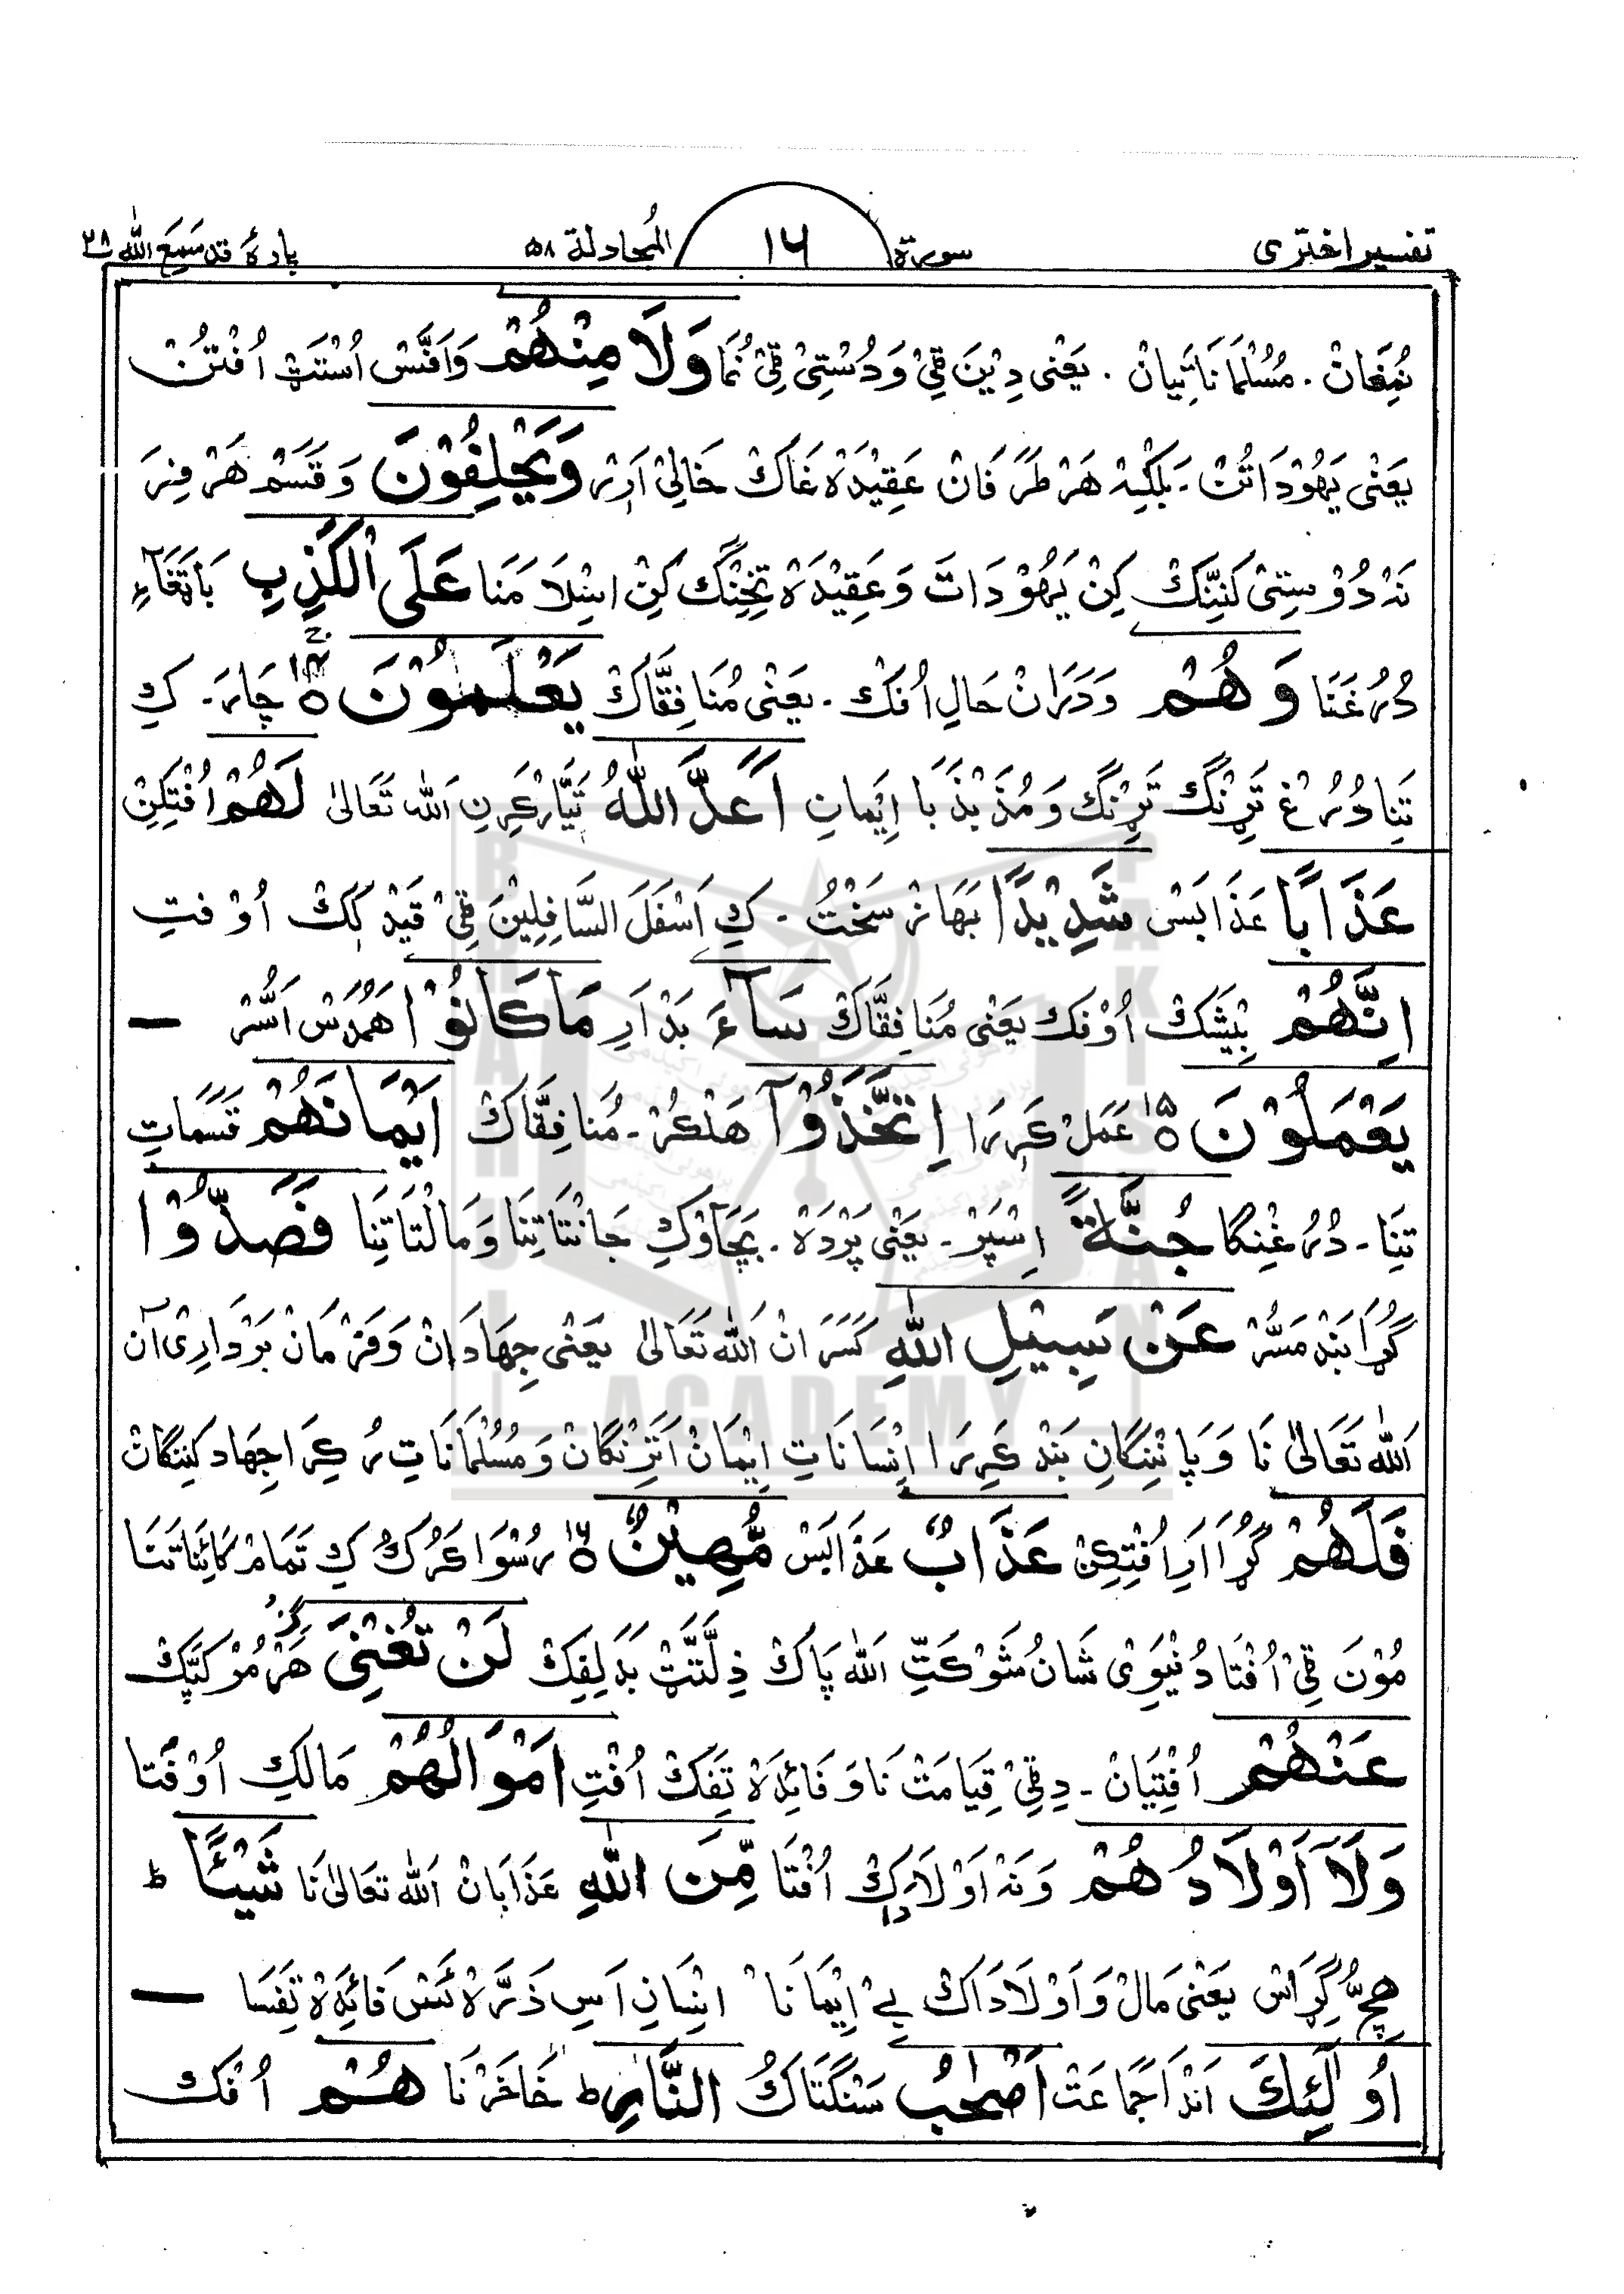 تفسیر اختری سورة ١٦ المجادلة ۵۸ پارهٔ قد سَمِعَ اللّٰه ۲۸
نُمِغَانْ ۔ مُسُلْمَانَاتِّیَانْ ۔ یَعْنِی دِیْنَ ٹِیْ وَ دُسْتِیْ ٹِیْ نُمَا وَلَا مِنْهُمْ وَ اَفَّسْ اُسْتَٹْ اُفْتُنْ
یَعْنِی یَهُوْدَاتُنْ ۔ بَلْکِہْ هَرْ طَرَفَانْ عَقِیْدَهْ غَاكْ خَالِیْ اَرِرْ وَیَحْلِفُوْنَ وَ قَسَمْ هَرْفِرَ
نَہْ دُوْسِتِیْ کَنِنِّنْكْ کِنْ یَهُوْدَاتَ وَ عَقِیْدَهْ تِخِنْگْ کِنْ اِسْلَامَنَا عَلَی الْکَذِبِ بَاتِغَاءِ
دُرُغَنَا وَهُمْ وَ دَرَانْ حَالِ اُفْكْ ۔ یَعْنِی مُنَافِقَّاكْ یَعْلَمُوْنَ ۱۴ چَارَ ۔ کِ
تِنَا دُرُغْ تِرِنْگْ تِرِنْگْ وَ مُذَبْذَبَا اِیْمَانِ اَعَدَّ اللّٰهُ تَیَّارْ کَرِنِ اَللّٰه تَعَالیٰ لَهُمْ اُفْتِکِنْ
عَذَابًا عَذَابَسْ شَدِیْدًا بَهَازْ سَخْتُ ۔ کِ اَسْفَلَ السَّافِلِیْنَ ٹِیْ قَیْدْ کِكْ اُوْفِتِ
اِنَّهُمْ بِیْشَكْ اُوْفْكْ یَعْنِی مُنَافِقَّاكْ سَآءَ بَدْ اَرِ مَا کَانُوْا هَمُدُسْ اَسُّرْ —
یَعْمَلُوْنَ ۱۵ عَمَلْ کَرِرَا اِتَّخَذُوْٓا هَلْکُرْ ۔ مُنَافِقَّاكْ اَیْمَانَهُمْ قَسَمَاتِ
تِنَا ۔ دُرُغْنِکَا جُنَّةً اِسْپَرْ ۔ یَعْنِی پَرْدَهْ ۔ بَچَاوْكِ جَانْتَاتِنَا وَ مَالْتَاتِنَا فَصَدُّوْا
گُڑَا بَنْد مَسُّرْ عَنْ سَبِیْلِ اللّٰهِ کَسَرَانْ اَللّٰه تَعَالیٰ یَعْنِی جِهَادَانْ وَ فَرْمَانْ بَرْدَارِیْ آنْ
اَللّٰه تَعَالیٰ نَا وَ پَانِنْگَانِ بَنْد کَرِرَا اِنْسَانَاتِ اِیْمَانْ اَتِرِنْگَانْ وَ مُسُلْمَانَاتِ رُ کِرَا جِهَاد کَنِنْگَانْ
فَلَهُمْ گُڑَا اَرِ اُفْتِکِنْ عَذَابٌ عَذَابَسْ مُّهِیْنٌ ۱۶ رُسْوَا کَرُكُ کِ تَمَامْ کَائِنَاتَنَا
مُوْنَ ٹِیْ اُفْتَا دُنْیَوِیْ شَانُ شَوْکَتِّ اَللّٰه پَاكْ ذِلَّتَٹْ بَدَلِفِكْ لَنْ تُغْنِیَ هَرْگِزْ مُرْ کَپَّكْ
عَنْهُمْ اُفْتِیَانْ ۔ دِٹِیْ قِیَامَتْ نَا وَ فَائِدَهْ تِفَكْ اُفْتِ اَمْوَالُهُمْ مَالْكِ اُوْفْتَا
وَلَآ اَوْلَادُهُمْ وَ نَہْ اَوْلَادِكْ اُفْتَا مِّنَ اللّٰهِ عَذَابَانْ اَللّٰه تَعَالیٰ نَا شَیْـًٔا ط
هِچُّ گِڑَاسْ یَعْنِی مَالْ وَ اَوْلَادَاكْ بےْ اِیْمَانَا اِنْسَانِ اَسِ ذَرَّهْ ئَسْ فَائِدَهْ تِفَسَا —
اُولٰٓئِكَ اَنْدَا جَمَاعَتْ اَصْحٰبُ سَنْگَتَاكُ النَّارِ ط خَاخَرْ نَا هُمْ اُفْكْ
BRAHUI ACADEMY PAKISTAN